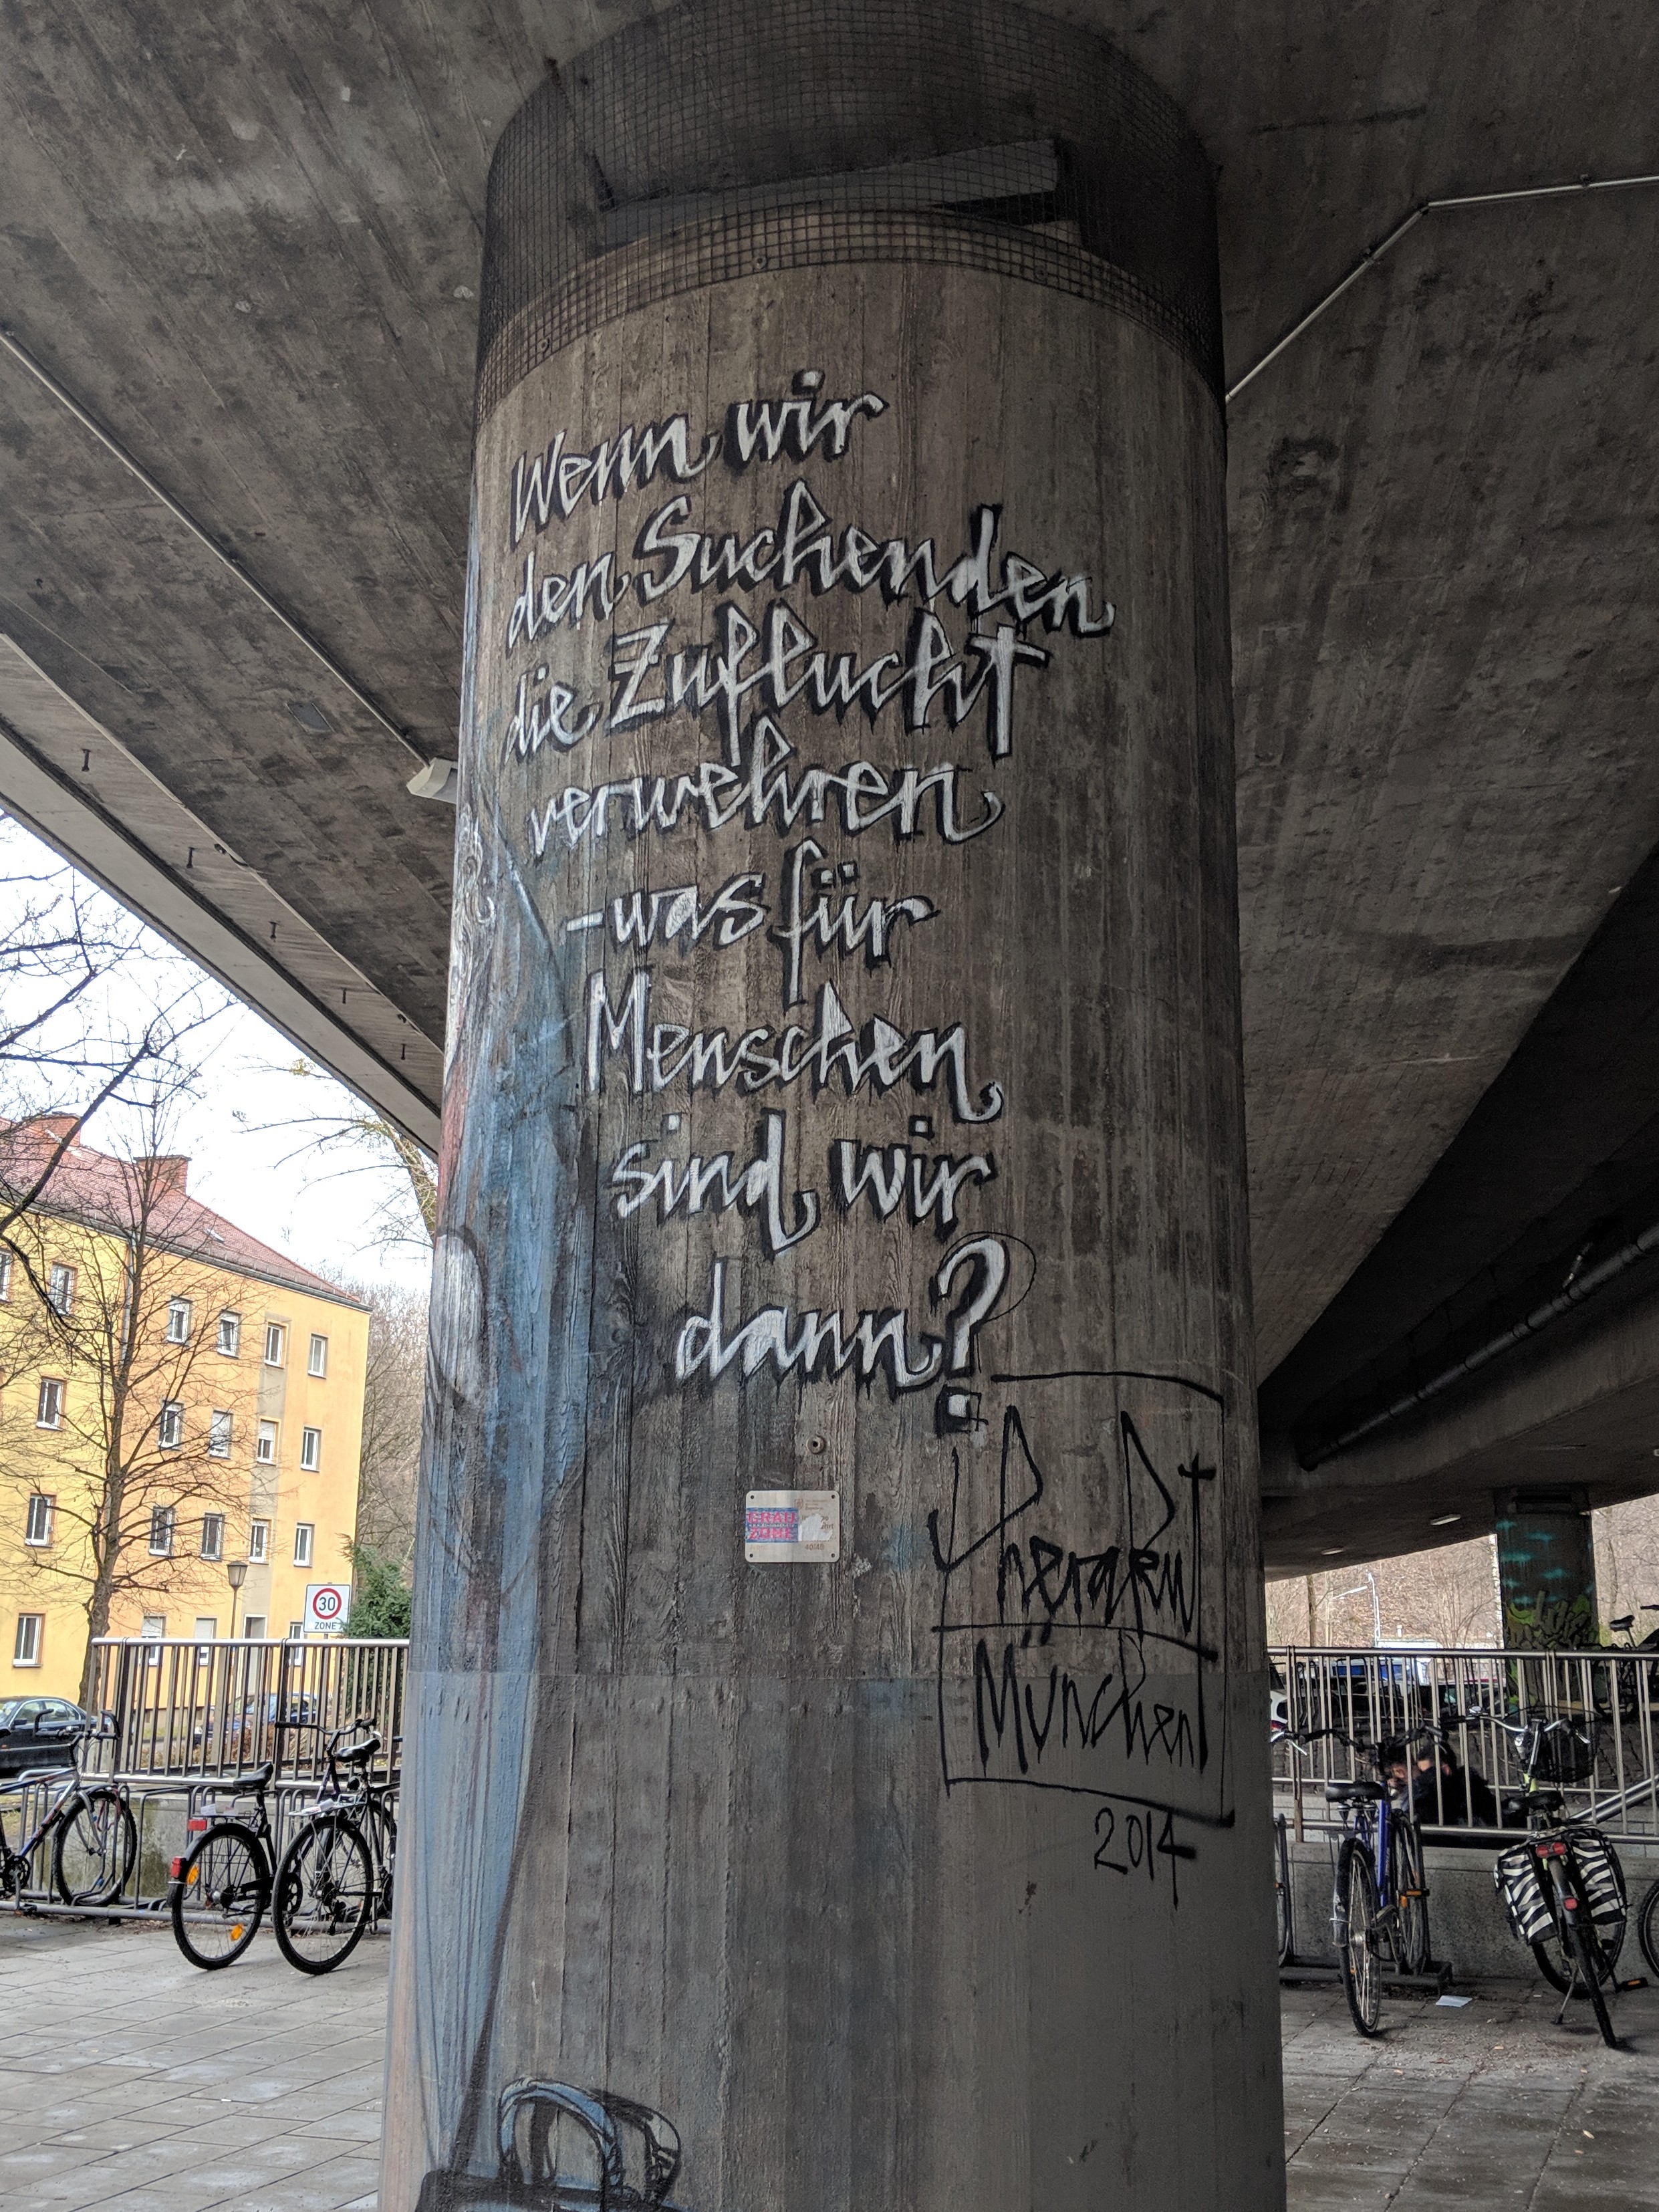 Wenn wir
den Suchenden
die Zuflucht
verwehren
-was für
Menschen
sind wir
dann?
GRAU
ZONE
München
2014
30
ZONE